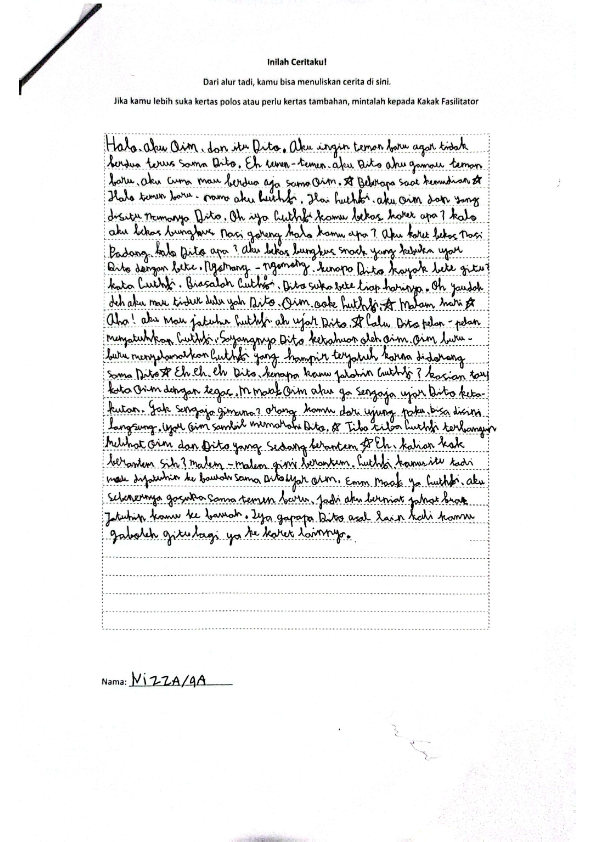 Inilah Ceritaku!
Dari alur tadi, kamu bisa menuliskan cerita di sini.
Jika kamu lebih suka kertas polos atau perlu kertas tambahan, mintalah kepada Kakak Fasilitator
Halo. aku Oim. dan itu Dito. Aku ingin teman baru agar tidak
berdua terus sama Dito. Eh temen-temen. aku Dito aku gamau teman
baru. aku cuma mau berdua aja sama Oim. ☆ Beberapa saat kemudian ☆
Halo temen baru. nama aku Luthfi. Hai Luthfi. aku Oim dan yang
disitu namanya Dito. Oh iya Luthfi kamu bekas karet apa? kalo
aku bekas bungkus nasi goreng kalo kamu apa? Aku karet bekas nasi
Padang. kalo Dito apa? aku bekas bungkus snack yang kebuka ujar
Dito dengan bete. Ngomong-ngomong. kenapa Dito kayak bete gitu?
kata Luthfi. Biasalah Luthfi. Dito suka bete tiap harinya. Oh yaudah
deh aku mau tidur dulu yah Dito. Oim. oke Luthfi. ☆ Malam hari ☆
Aha! aku mau jatuhin Luthfi ah ujar Dito. ☆ Lalu Dito pelan-pelan
menjatuhkan Luthfi. Sayangnya Dito ketahuan oleh Oim. Oim buru-
buru menyelamatkan Luthfi yang hampir terjatuh karna didorong
sama Dito ☆ Eh. Eh. eh Dito. kenapa kamu jatohin Luthfi? kasian tau
kata Oim dengan tegas. M maak Oim aku ga sengaja ujar Dito keta-
kutan. Gak sengaja gimana? orang kamu dari ujung paku bisa disini
langsung. Ujar Oim sambil memarahi Dito. ☆ Tiba tiba Luthfi terbangun
melihat Oim dan Dito yang sedang berantem. ☆ Eh. kalian kok
berantem sih? malem-malem gini berantem. Luthfi. kamu itu tadi
mau dijatuhin ke bawah sama Dito Ujar Oim. Emm Maaf ya Luthfi. aku
sebenernya gasuka sama temen baru. jadi aku berniat jahat buat
Jatuhin kamu ke bawah. Iya gapapa Dito asal lain kali kamu
gaboleh gitu lagi ya ke karet lainnya.
Nama: NIZZA/9A